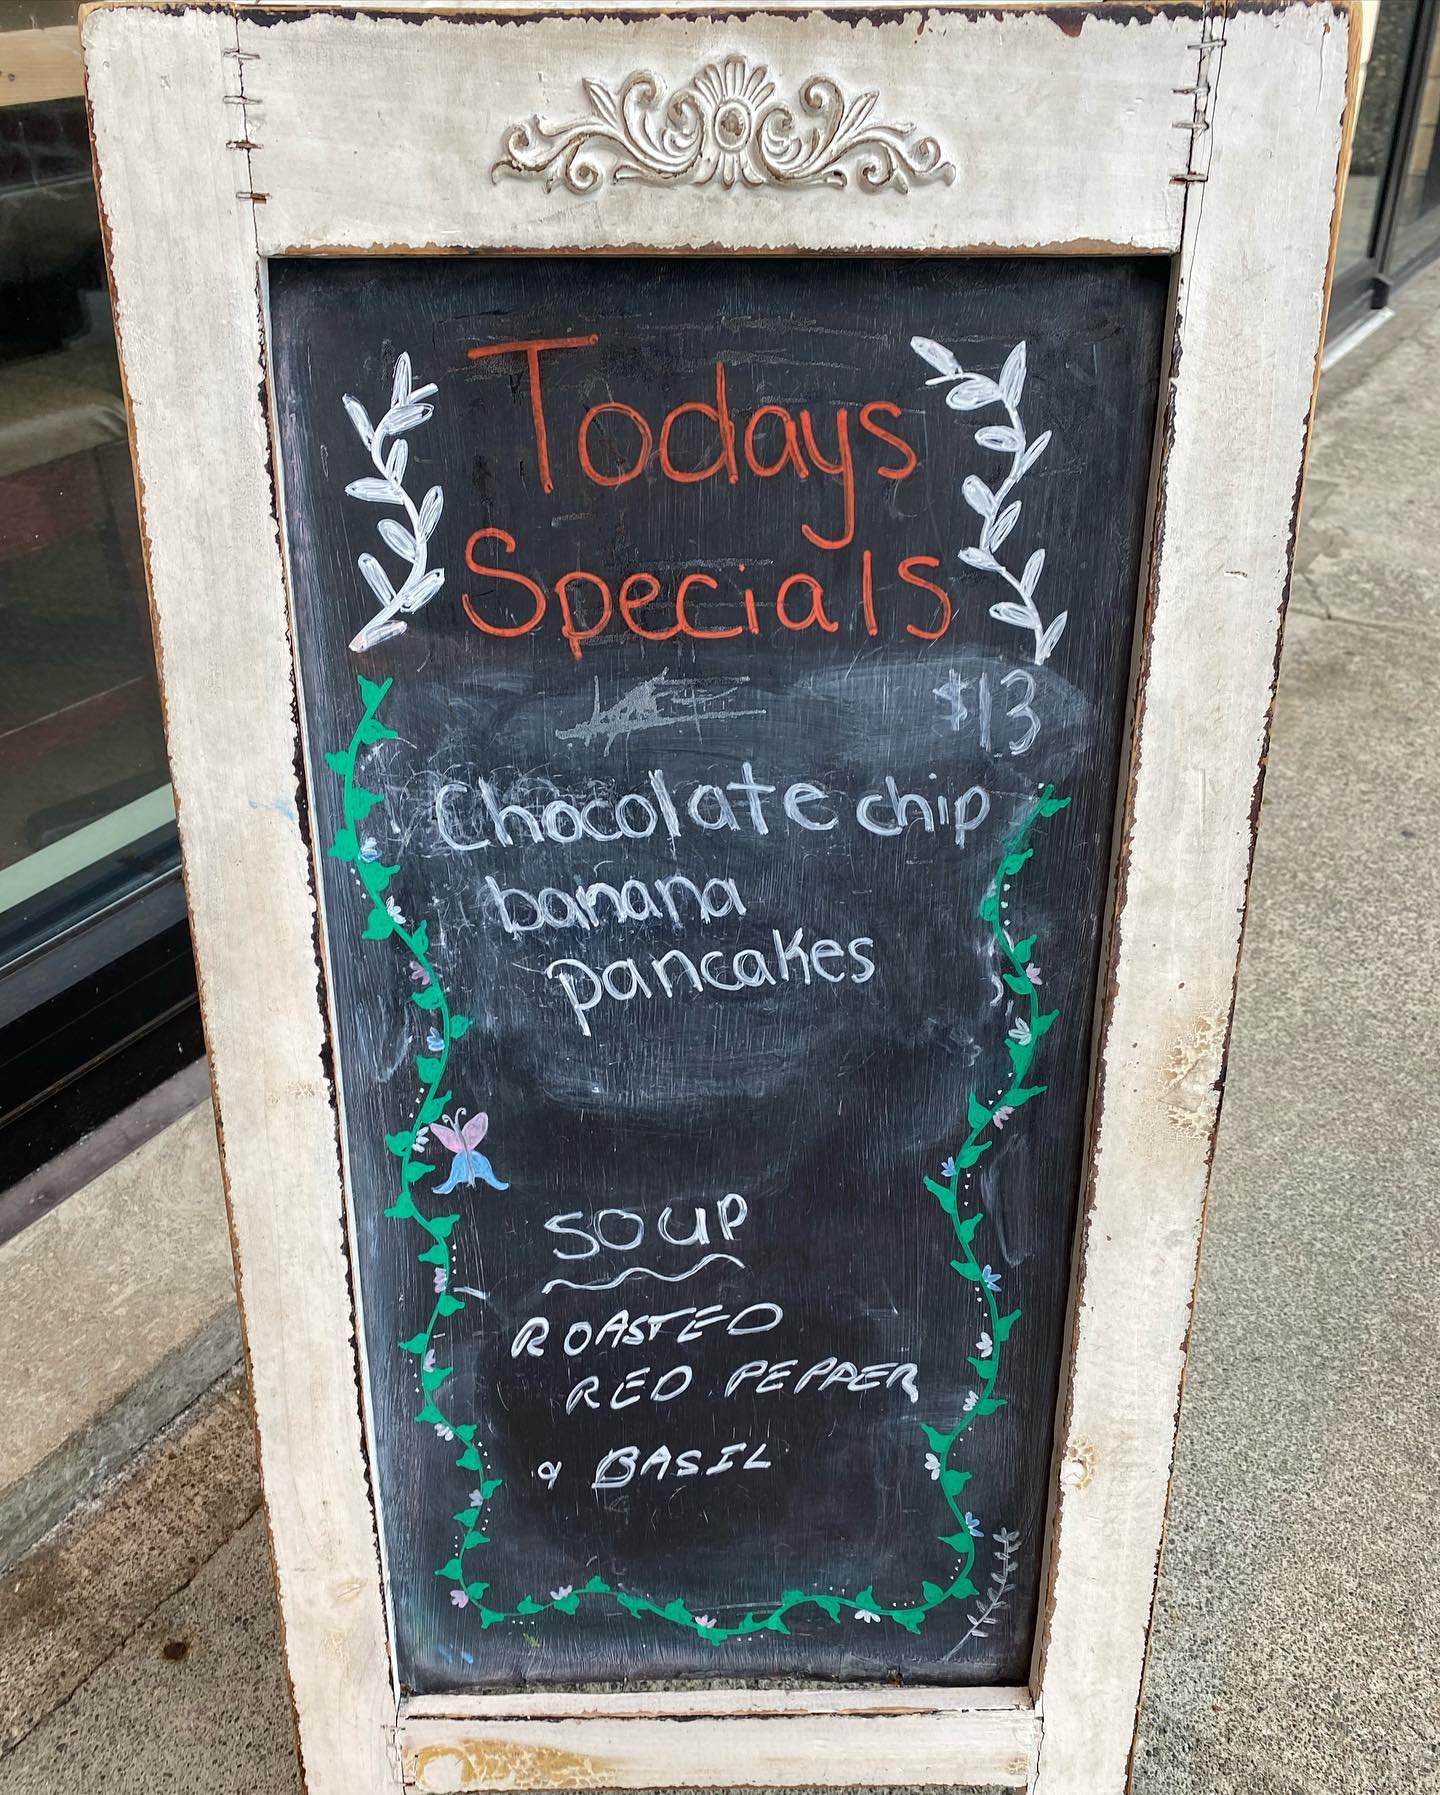 Todays
Specials
$13
Chocolate chip
banana
pancakes
SOUP
ROASTED
RED PEPPER
& BASIL